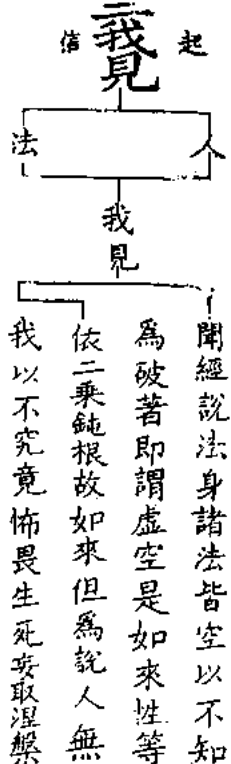 起信
二我見
人
法
我見
聞經說法身諸法皆空以不知
爲破著即謂虛空是如來性等
依二乘鈍根故如來但爲說人無
我以不究竟怖畏生死妄取涅槃